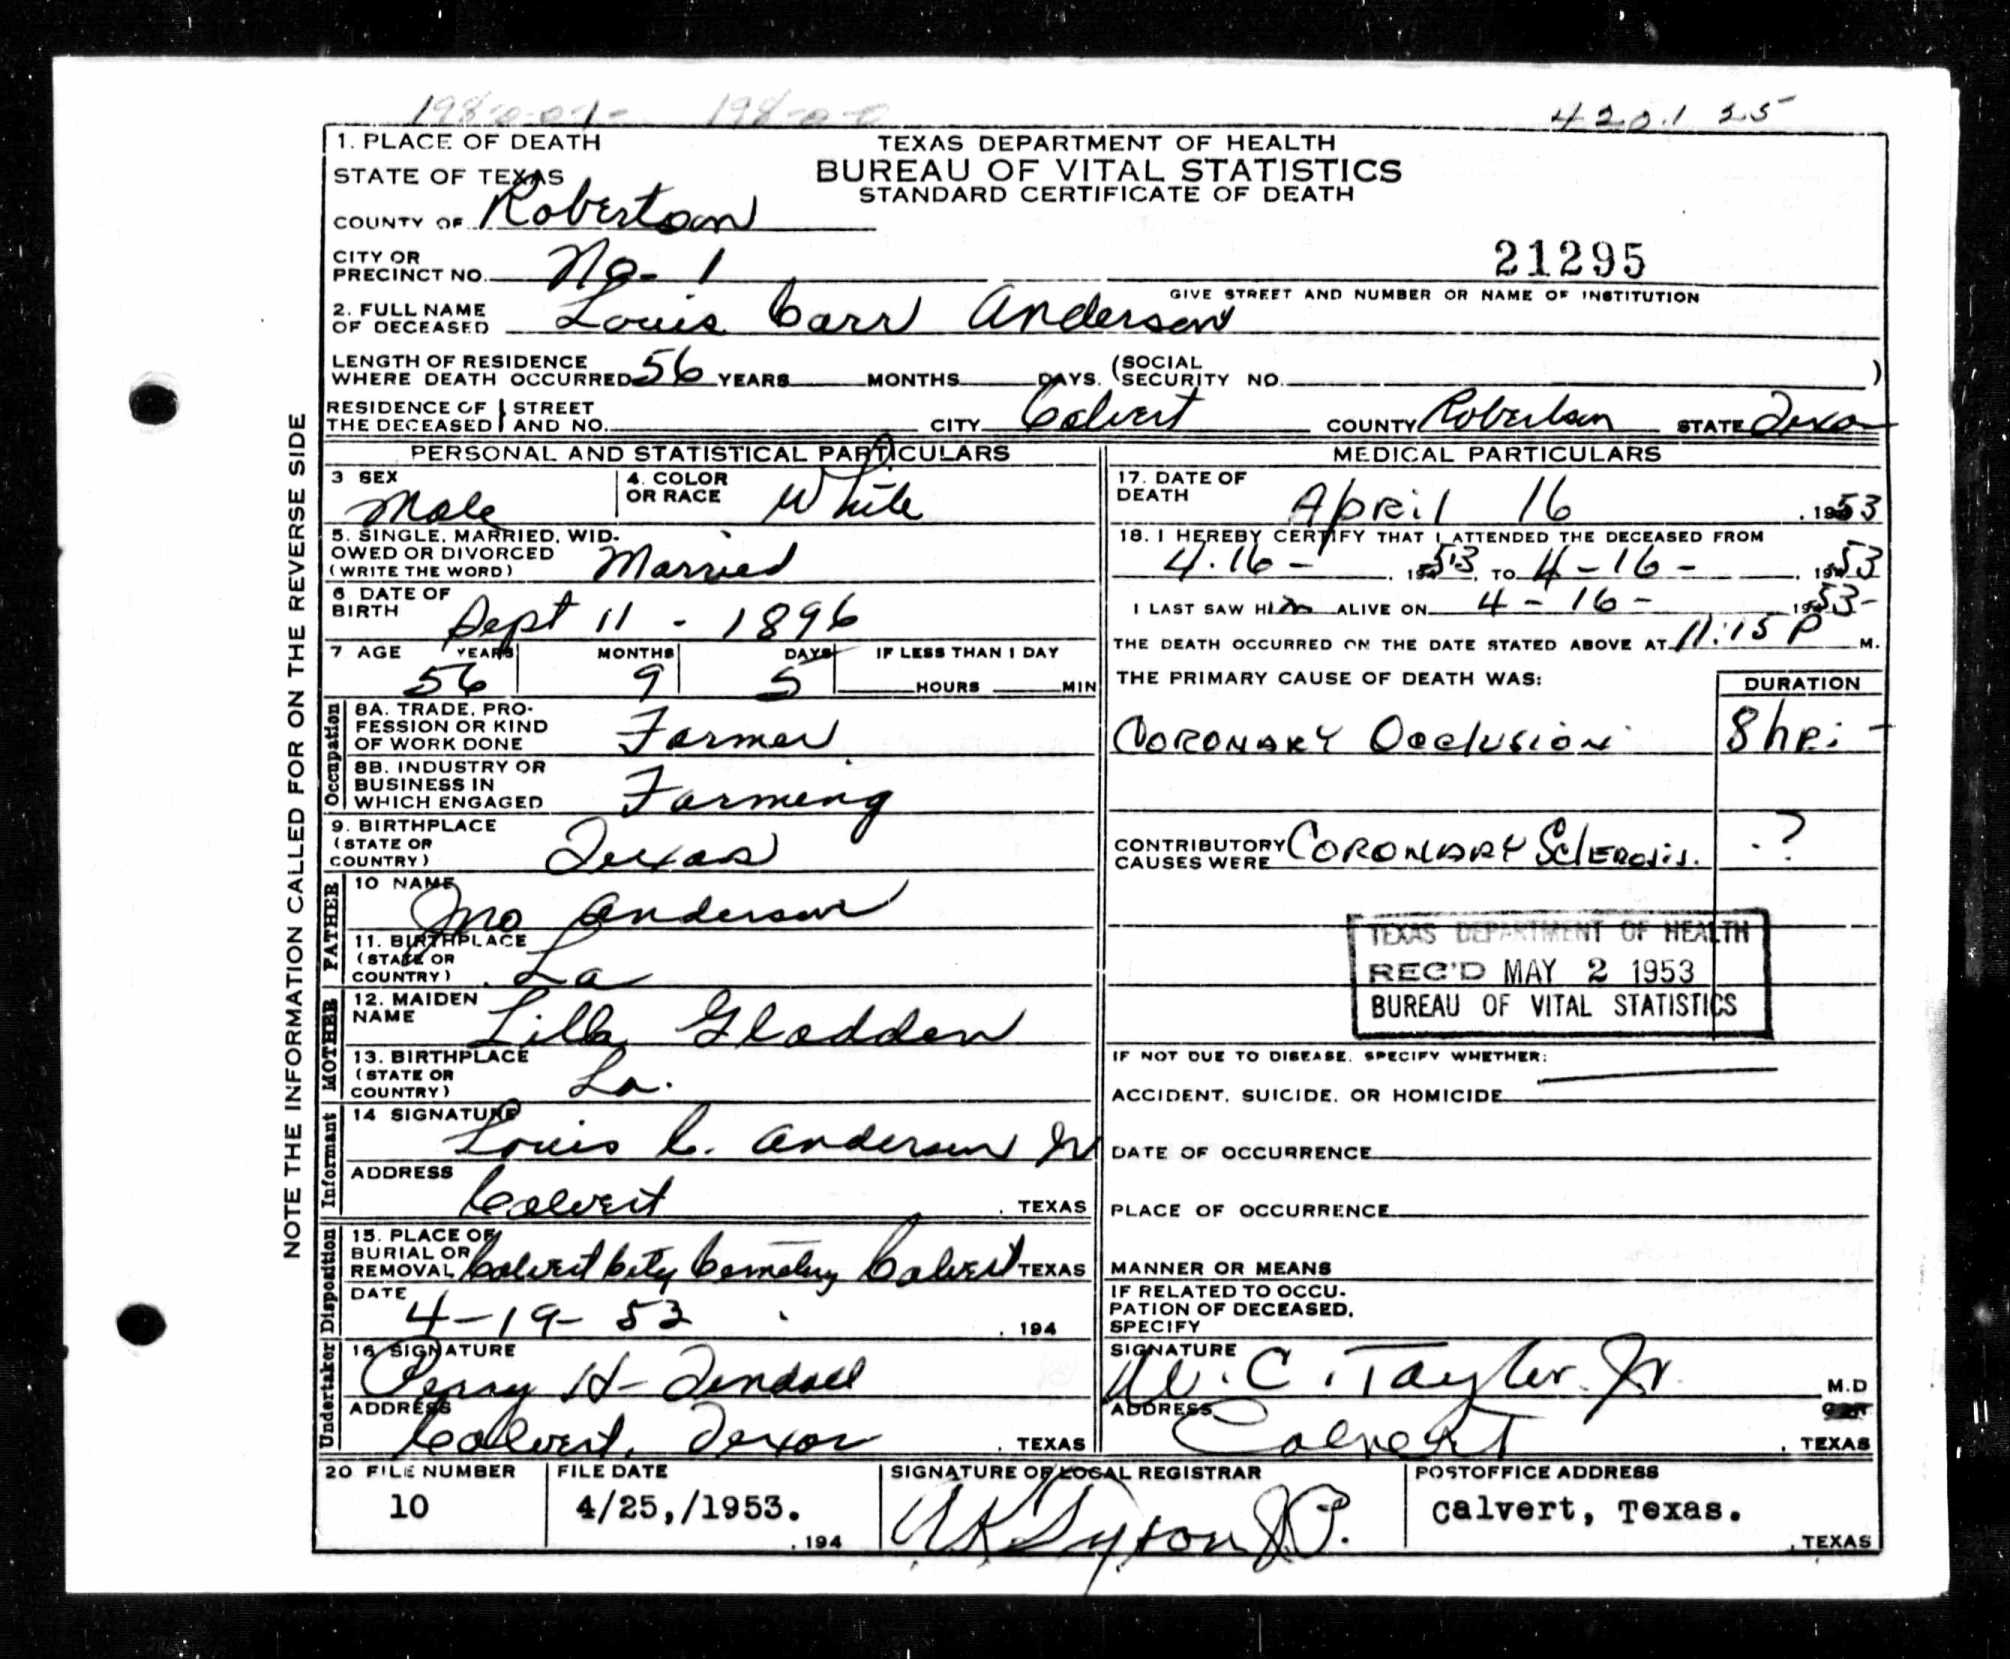 420.1 25
1. PLACE OF DEATH
TEXAS DEPARTMENT OF HEALTH
BUREAU OF VITAL STATISTICS
STANDARD CERTIFICATE OF DEATH
STATE OF TEXAS
COUNTY OF Robertson
CITY OR
PRECINCT NO. No. 1
21295
GIVE STREET AND NUMBER OR NAME OF INSTITUTION
2. FULL NAME
OF DECEASED Louis Carr Anderson
LENGTH OF RESIDENCE
WHERE DEATH OCCURRED 56 YEARS MONTHS DAYS. (SOCIAL SECURITY NO. )
RESIDENCE OF THE DECEASED } STREET AND NO. CITY Calvert COUNTY Robertson STATE Texas
NOTE THE INFORMATION CALLED FOR ON THE REVERSE SIDE
PERSONAL AND STATISTICAL PARTICULARS
3 SEX Male
4. COLOR OR RACE White
5. SINGLE, MARRIED, WID-
OWED OR DIVORCED
(WRITE THE WORD) Married
6 DATE OF
BIRTH Sept 11 - 1896
7 AGE YEARS MONTHS DAYS IF LESS THAN 1 DAY
56 9 5 HOURS MIN
Occupation
8A. TRADE, PRO-
FESSION OR KIND
OF WORK DONE Farmer
8B. INDUSTRY OR
BUSINESS IN
WHICH ENGAGED Farming
9. BIRTHPLACE
(STATE OR
COUNTRY) Texas
FATHER
10 NAME Jno Anderson
11. BIRTHPLACE
(STATE OR
COUNTRY) La
MOTHER
12. MAIDEN
NAME Lilla Gladden
13. BIRTHPLACE
(STATE OR
COUNTRY) La.
Informant
14 SIGNATURE Louis C. Anderson Jr
ADDRESS Calvert , TEXAS
Disposition
15. PLACE OF
BURIAL OR
REMOVAL Calvert City Cemetery Calvert TEXAS
DATE 4-19-53 , 194
Undertaker
16 SIGNATURE Perry H- Tindall
ADDRESS Calvert, Texas , TEXAS
MEDICAL PARTICULARS
17. DATE OF
DEATH April 16 , 1953
18. I HEREBY CERTIFY THAT I ATTENDED THE DECEASED FROM
4.16- , 1953, TO 4-16- , 1953
I LAST SAW HIM ALIVE ON 4-16- 1953-
THE DEATH OCCURRED ON THE DATE STATED ABOVE AT 11:15 P M.
THE PRIMARY CAUSE OF DEATH WAS: DURATION
Coronary Occlusion 8 hr. -
CONTRIBUTORY
CAUSES WERE Coronary Sclerosis. . ?
TEXAS DEPARTMENT OF HEALTH
REC'D MAY 2 1953
BUREAU OF VITAL STATISTICS
IF NOT DUE TO DISEASE, SPECIFY WHETHER:
ACCIDENT, SUICIDE, OR HOMICIDE
DATE OF OCCURRENCE
PLACE OF OCCURRENCE
MANNER OR MEANS
IF RELATED TO OCCU-
PATION OF DECEASED,
SPECIFY
SIGNATURE W. C. Taylor Jr M.D
ADDRESS Calvert , TEXAS
20 FILE NUMBER 10
FILE DATE 4/25,/1953. , 194
SIGNATURE OF LOCAL REGISTRAR
Tyson J.P.
POSTOFFICE ADDRESS
Calvert, Texas.
, TEXAS